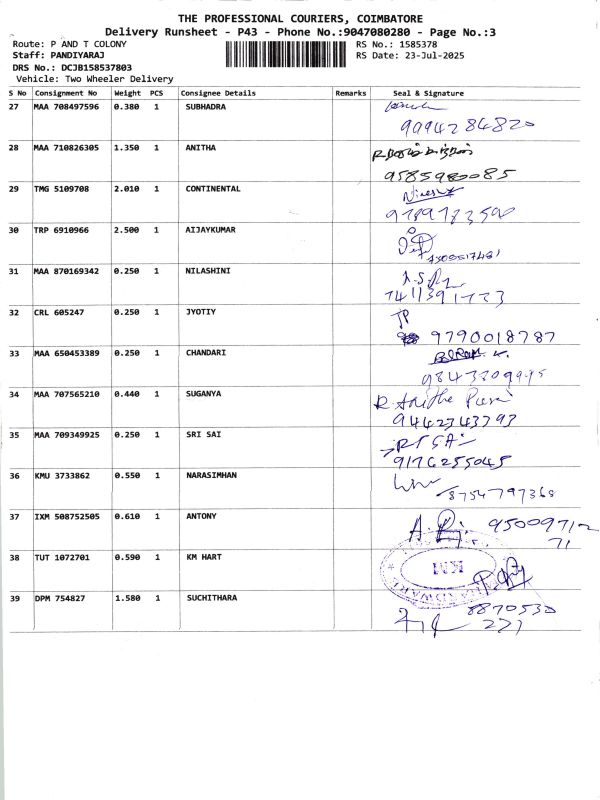 THE PROFESSIONAL COURIERS, COIMBATORE
Delivery Runsheet - P43 - Phone No.:9047080280 - Page No.:3
Route: P AND T COLONY RS No.: 1585378
Staff: PANDIYARAJ RS Date: 23-Jul-2025
DRS No.: DCJB158537803
Vehicle: Two Wheeler Delivery
S No Consignment No Weight PCS Consignee Details Remarks Seal & Signature
27 MAA 708497596 0.380 1 SUBHADRA
9094284820
28 MAA 710826305 1.350 1 ANITHA
9585980085
29 TMG 5109708 2.010 1 CONTINENTAL
9789783500
30 TRP 6910966 2.500 1 AIJAYKUMAR
31 MAA 870169342 0.250 1 NILASHINI
7411391773
32 CRL 605247 0.250 1 JYOTIY JP
9790018787
33 MAA 650453389 0.250 1 CHANDARI
34 MAA 707565210 0.440 1 SUGANYA R. Anitha
9442343793
35 MAA 709349925 0.250 1 SRI SAI
9176255045
36 KMU 3733862 0.550 1 NARASIMHAN
8754797368
37 IXM 508752505 0.610 1 ANTONY
95009712
71
38 TUT 1072701 0.590 1 KM HART KM
39 DPM 754827 1.580 1 SUCHITHARA 8870530
271